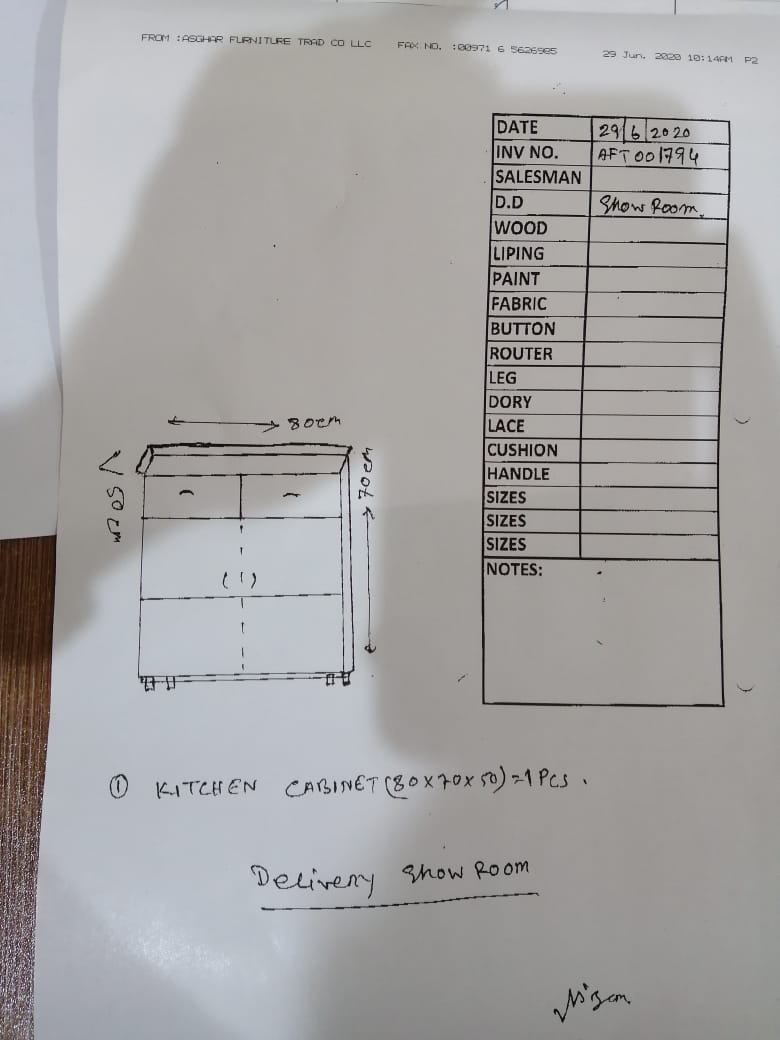 FROM :ASGHAR FURNITURE TRAD CO LLC FAX NO. :00971 6 5626985 29 Jun. 2020 10:14AM P2
DATE 29/6/2020
INV NO. AFT 001794
SALESMAN
D.D Show Room.
WOOD
LIPING
PAINT
FABRIC
BUTTON
ROUTER
LEG
DORY
LACE
CUSHION
HANDLE
SIZES
SIZES
SIZES
NOTES:
80cm
50cm
70cm
① KITCHEN CABINET (80x70x50)=1 Pcs.
Delivery Show Room